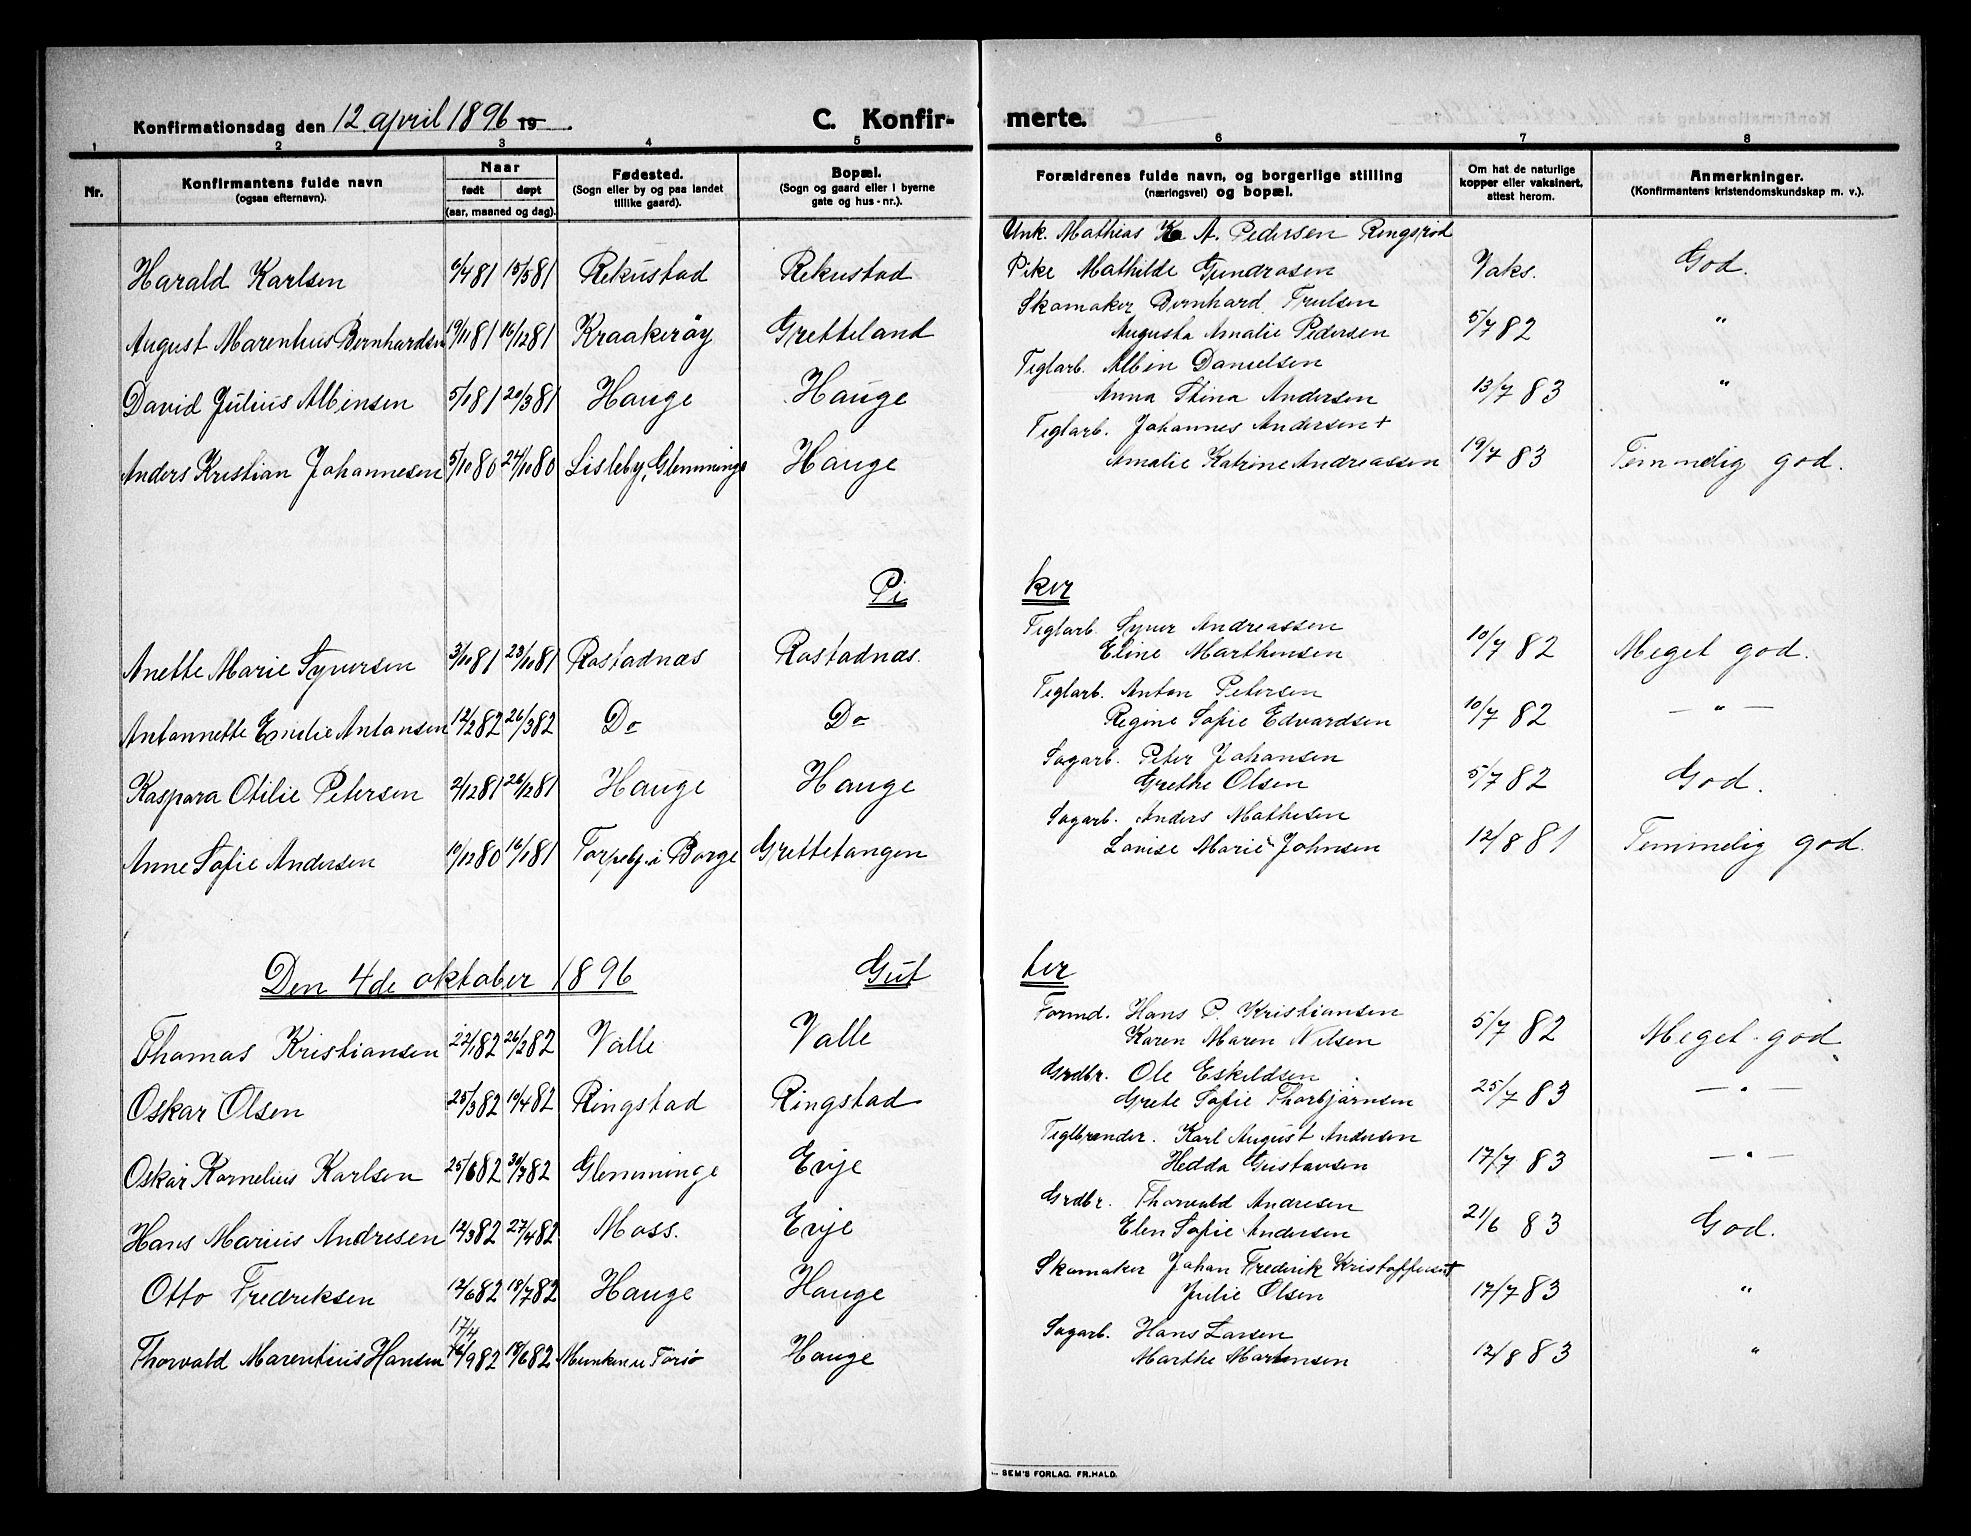 Konfirmationsdag den 12 april 1896 19 .
C. Konfir-
merte.
1 2 3 4 5 6 7 8
Nr.
Konfirmantens fulde navn
(ogsaa efternavn).
Naar
født døpt
(aar, maaned og dag).
Fødested.
(Sogn eller by og paa landet
tillike gaard).
Bopæl.
(Sogn og gaard eller i byerne
gate og hus-nr.).
Forældrenes fulde navn, og borgerlige stilling
(næringsvei) og bopæl.
Om hat de naturlige
kopper eller vaksinert,
attest herom.
Anmerkninger.
(Konfirmantens kristendomskundskap m. v.).
Unk. Mathias K. A. Pedersen Ringsrød
Harald Karlsen 6/4 81 15/5 81 Rekustad Rekustad Pike Mathilde Gundrosen Vaks. God.
Skomaker Bernhard Trulsen
August Marenhus Bernhardsen 19/11 81 16/12 81 Kraakerøy Gretteland Augusta Amalie Pedersen 5/7 82 "
Teglarb. Albin Danielsen
David Julius Albinsen 5/1 81 20/3 81 Hauge Hauge Anna Stina Andersen 13/7 83 "
Teglarb. Johannes Andersen +
Anders Kristian Johannesen 5/10 80 24/10 80 Lisleby, Glemminge Hauge Amalie Katrine Andreassen 19/7 83 Temmelig god.
Pi ker
Teglarb. Syver Andreassen
Anette Marie Syversen 3/10 81 23/10 81 Rostadnæs Rostadnæs. Eline Marthinsen 10/7 82 Meget god.
Teglarb. Anton Petersen
Antonnette Emelie Antonsen 12/2 82 26/3 82 Do Do Regine Sofie Edvardsen 10/7 82 — " —
Sagarb. Peter Johansen
Kaspara Otilie Petersen 2/12 81 26/12 81 Hauge Hauge Grethe Olsen 5/7 82 God.
Sagarb. Anders Mathesen
Anne Sofie Andersen 10/12 80 16/1 81 Torpeby i Borge Grettetangen Lovise Marie Johnsen 12/8 81 Temmelig god.
Den 4de oktober 1896 Gut ter
Formd. Hans P. Kristiansen
Thomas Kristiansen 22/1 82 26/2 82 Valle Valle Karen Maren Nilsen 5/7 82 Meget god
Grdbr. Ole Eskildsen
Oskar Olsen 25/3 82 19/4 82 Ringstad Ringstad Grete Sofie Thorbjørnsen 25/7 83 — " —
Teglbrænder. Karl August Andersen
Oskar Kornelius Karlsen 25/6 82 30/7 82 Glemminge Evje Hedda Gustavsen 17/7 83 — " —
Grdbr. Thorvald Andresen
Hans Marius Andresen 12/3 82 27/4 82 Moss. Evje Elen Sofie Andersen 21/6 83 God.
Skomaker Johan Frederik Kristoffersen +
Otto Fredriksen 12/6 82 18/7 82 Hauge Hauge Julie Olsen 17/7 83 "
17/4
Sagarb. Hans Larsen
Thorvald Marentius Hansen 82 18/6 82 Torsø Hauge Marthe Martinsen 12/8 83 "
SEM'S FORLAG. FR.HALD.